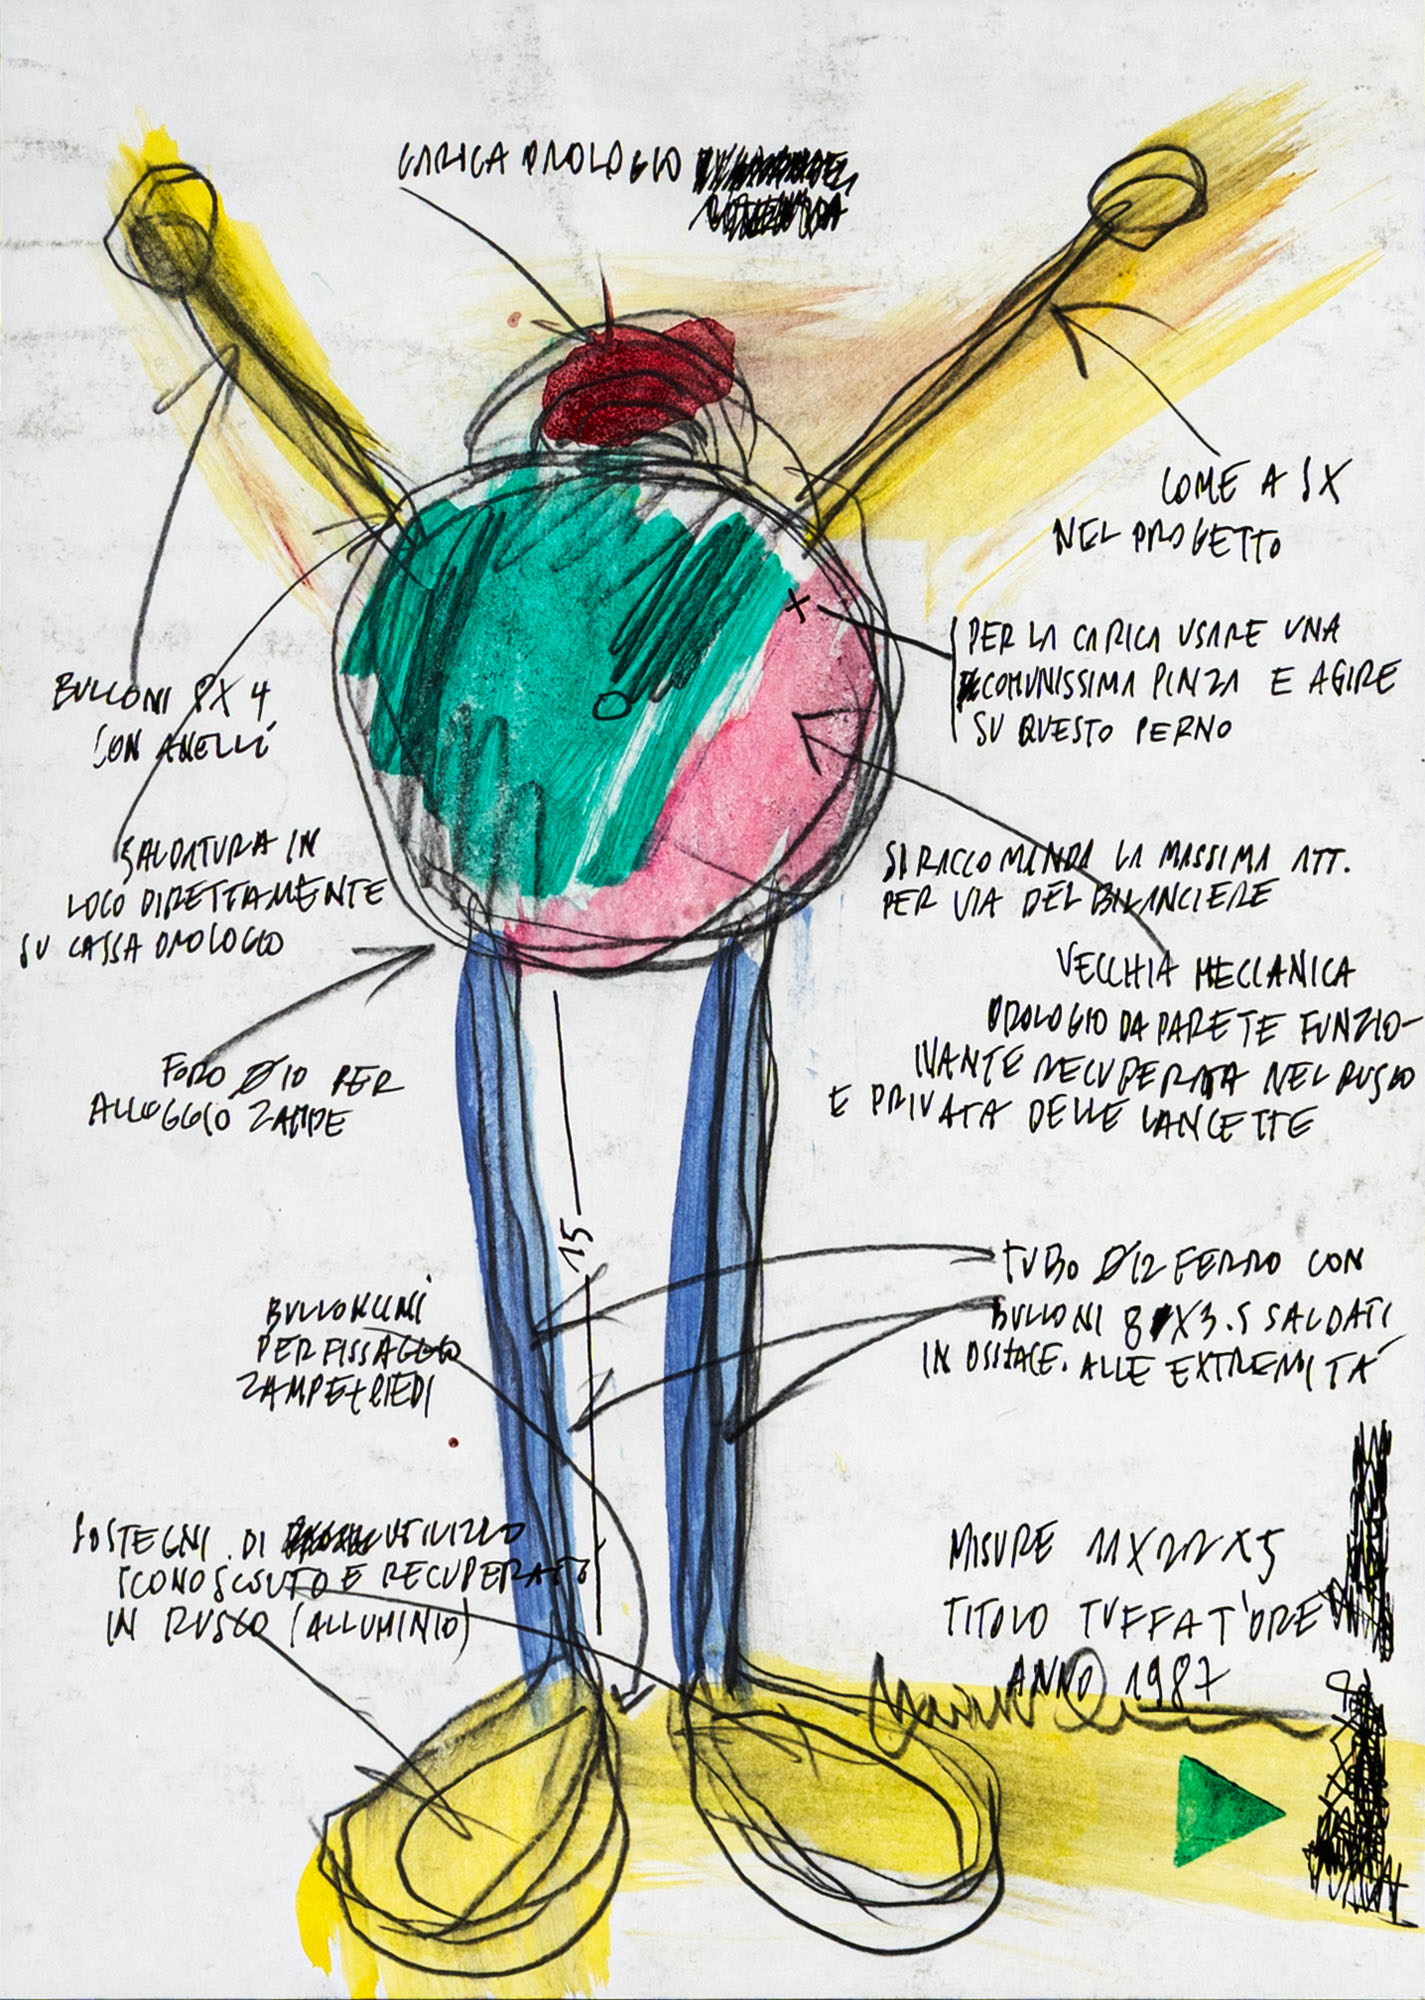 CARICA OROLOGIO
COME A SX
NEL PROGETTO
BULLONI 8X4
CON ANELLI
PER LA CARICA USARE UNA
COMUNISSIMA PINZA E AGIRE
SU QUESTO PERNO
SALDATURA IN
LOCO DIRETTAMENTE
SU CASSA OROLOGIO
SI RACCOMANDA LA MASSIMA ATT.
PER VIA DEL BILANCIERE
VECCHIA MECCANICA
OROLOGIO DA PARETE FUNZIO-
NANTE RECUPERATA NEL RUSCO
E PRIVATA DELLE LANCETTE
FORO Ø10 PER
ALLOGGIO ZAMPE
15
TUBO Ø12 FERRO CON
BULLONI 8X3.5 SALDATI
IN OSSIACE. ALLE EXTREMITÁ
BULLONCINI
PER FISSAGGIO
ZAMPE+PIEDI
SOSTEGNI DI UTILIZZO
SCONOSCIUTO E RECUPERATO
IN RUSCO (ALLUMINIO)
MISURE 11X22X5
TITOLO TUFFAT'ORE
ANNO 1987